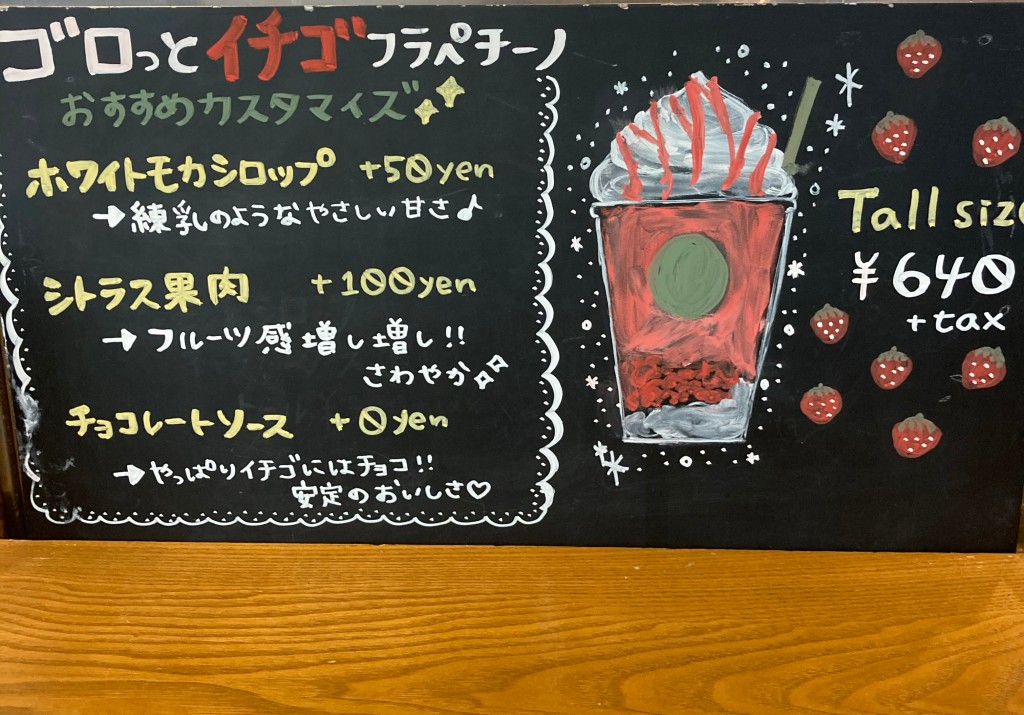 ゴロっとイチゴフラペチーノ
おすすめカスタマイズ
ホワイトモカシロップ +50yen
→練乳のようなやさしい甘さ♪
シトラス果肉 +100yen
→フルーツ感増し増し!!
さわやか
チョコレートソース +0yen
→やっぱりイチゴにはチョコ!!
安定のおいしさ♡
Tall size
¥640
+tax